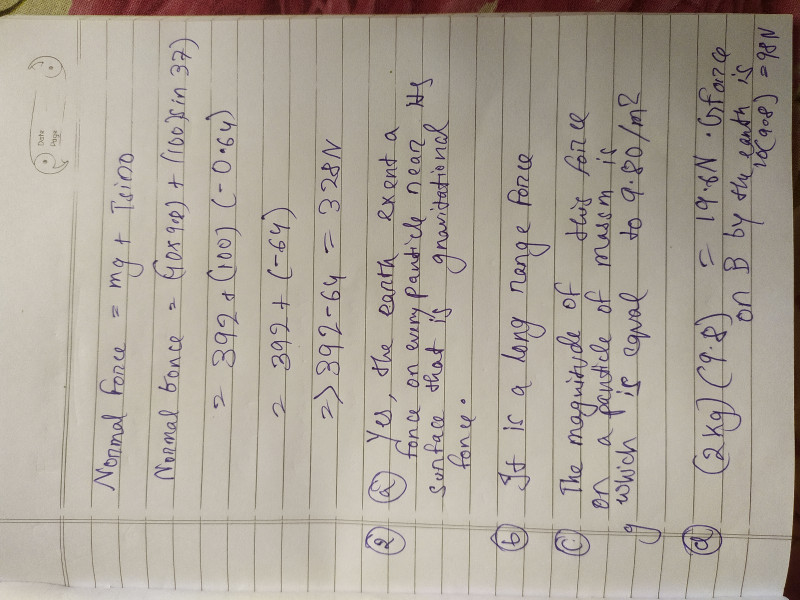 Date
Page
Normal Force = mg + Tsin θ
Normal Force = (40×9.8) + (100)(sin 37)
= 392 + (100) (-0.64)
= 392 + (-64)
=> 392 - 64 = 328 N
② ⓐ Yes, the earth exert a
force on every particle near its
surface that is gravitational
force.
ⓑ It is a long range force
ⓒ The magnitude of this force
on a particle of mass m is
which is equal to 9.80/m²
g
ⓓ (2kg) (9.8) = 19.6N. G Force
on B by the earth is
10(9.8) = 98N